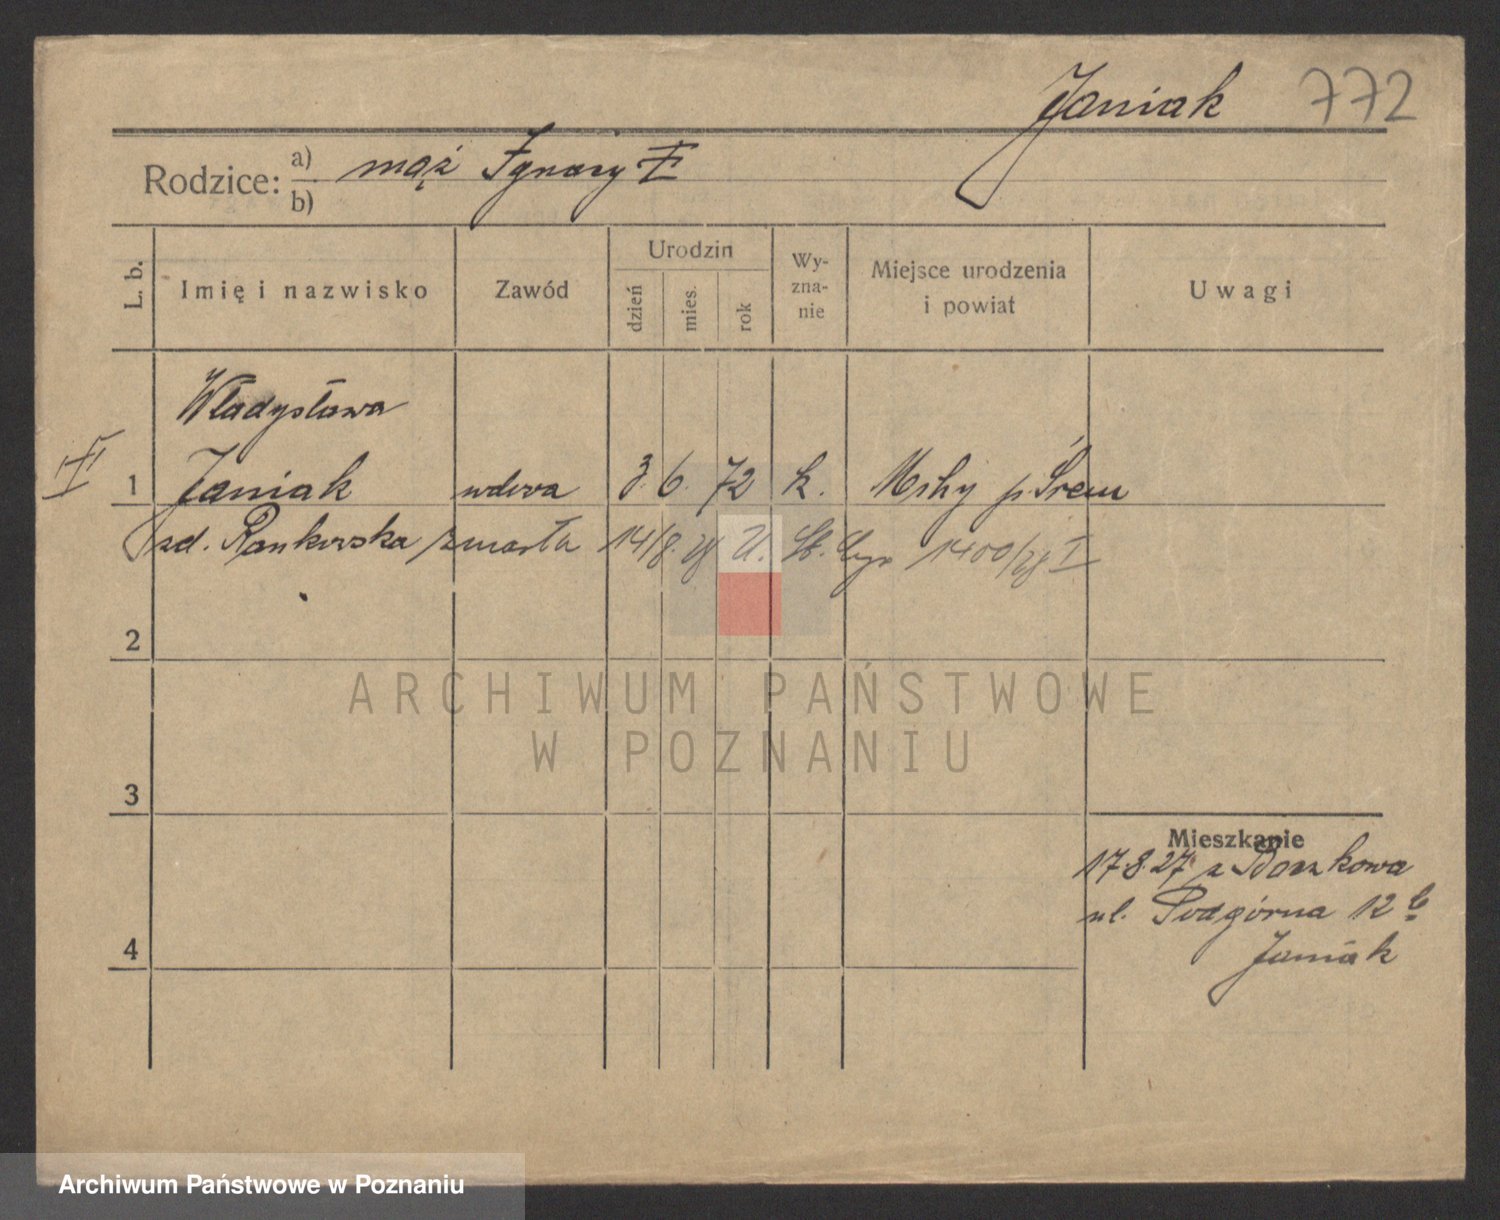 Janiak 772
Rodzice: a) mąż Ignacy †
b)
L. b.
Imię i nazwisko
Zawód
Urodzin
dzień
mies.
rok
Wy-
zna-
nie
Miejsce urodzenia
i powiat
Uwagi
Władysława
1 Janiak wdowa 3. 6. 72 k. Mchy p. Śrem
zmarła 14/8. U. St. 1400/28 I
2
3
4
Mieszkanie
17.8.27 z
ul. Podgórna 12 b
Janiak
ARCHIWUM PAŃSTWOWE
W POZNANIU
Archiwum Państwowe w Poznaniu